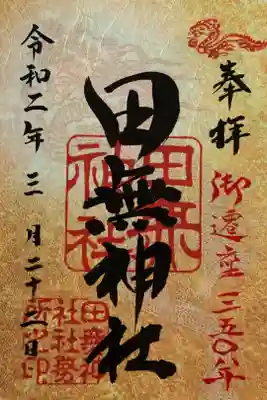 奉拝
御遷座三五〇年
田無神社
令和二年三月二十二日
田無神社
田無神
社社務
所之印